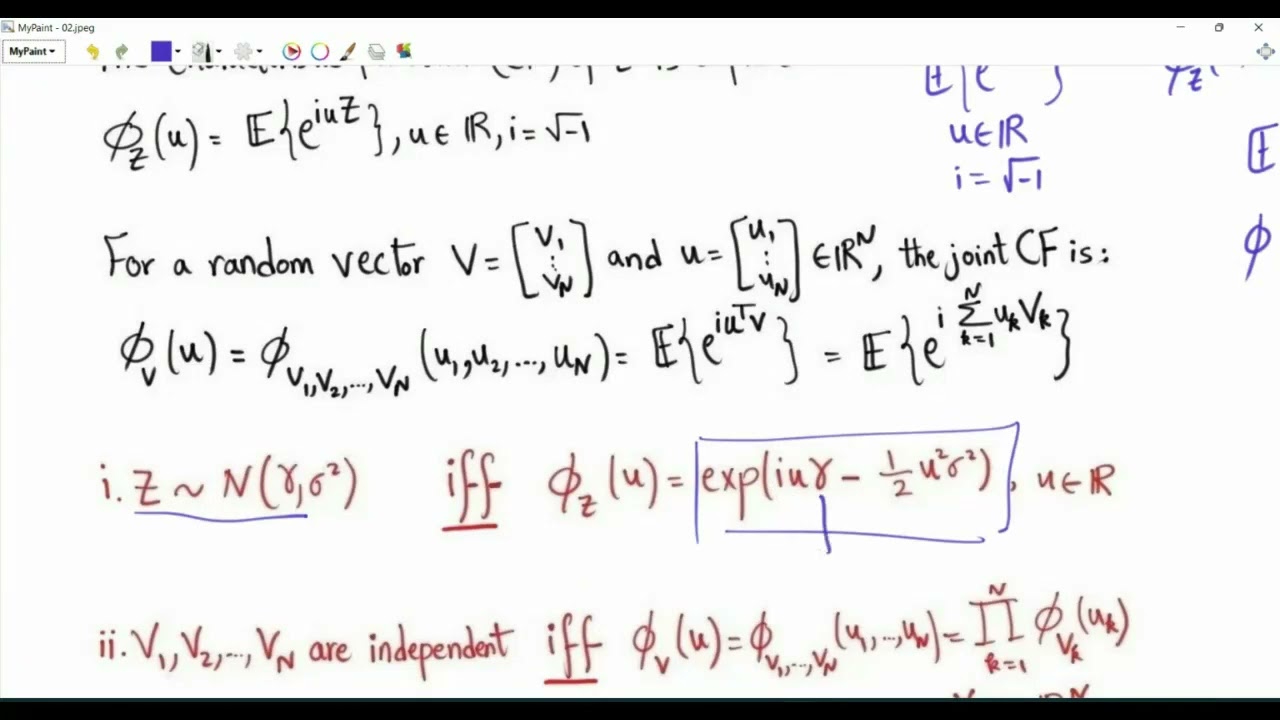 MyPaint - 02.jpeg
MyPaint
ϕ_Z(u) = 𝔼{e^{iuZ}}, u ∈ ℝ, i = √-1
u ∈ ℝ
i = √-1
𝔼
For a random vector V = [V_1 ⋮ V_N] and u = [u_1 ⋮ u_N] ∈ ℝ^N, the joint CF is:
ϕ
ϕ_V(u) = ϕ_{V_1,V_2,...,V_N}(u_1,u_2,...,u_N) = 𝔼{e^{iu^T V}} = 𝔼{e^{i ∑_{k=1}^N u_k V_k}}
i. Z ~ N(γ,σ²) iff ϕ_Z(u) = exp(iuγ - 1/2 u²σ²), u ∈ ℝ
ii. V_1,V_2,...,V_N are independent iff ϕ_V(u) = ϕ_{V_1,...,V_N}(u_1,...,u_N) = ∏_{k=1}^N ϕ_{V_k}(u_k)